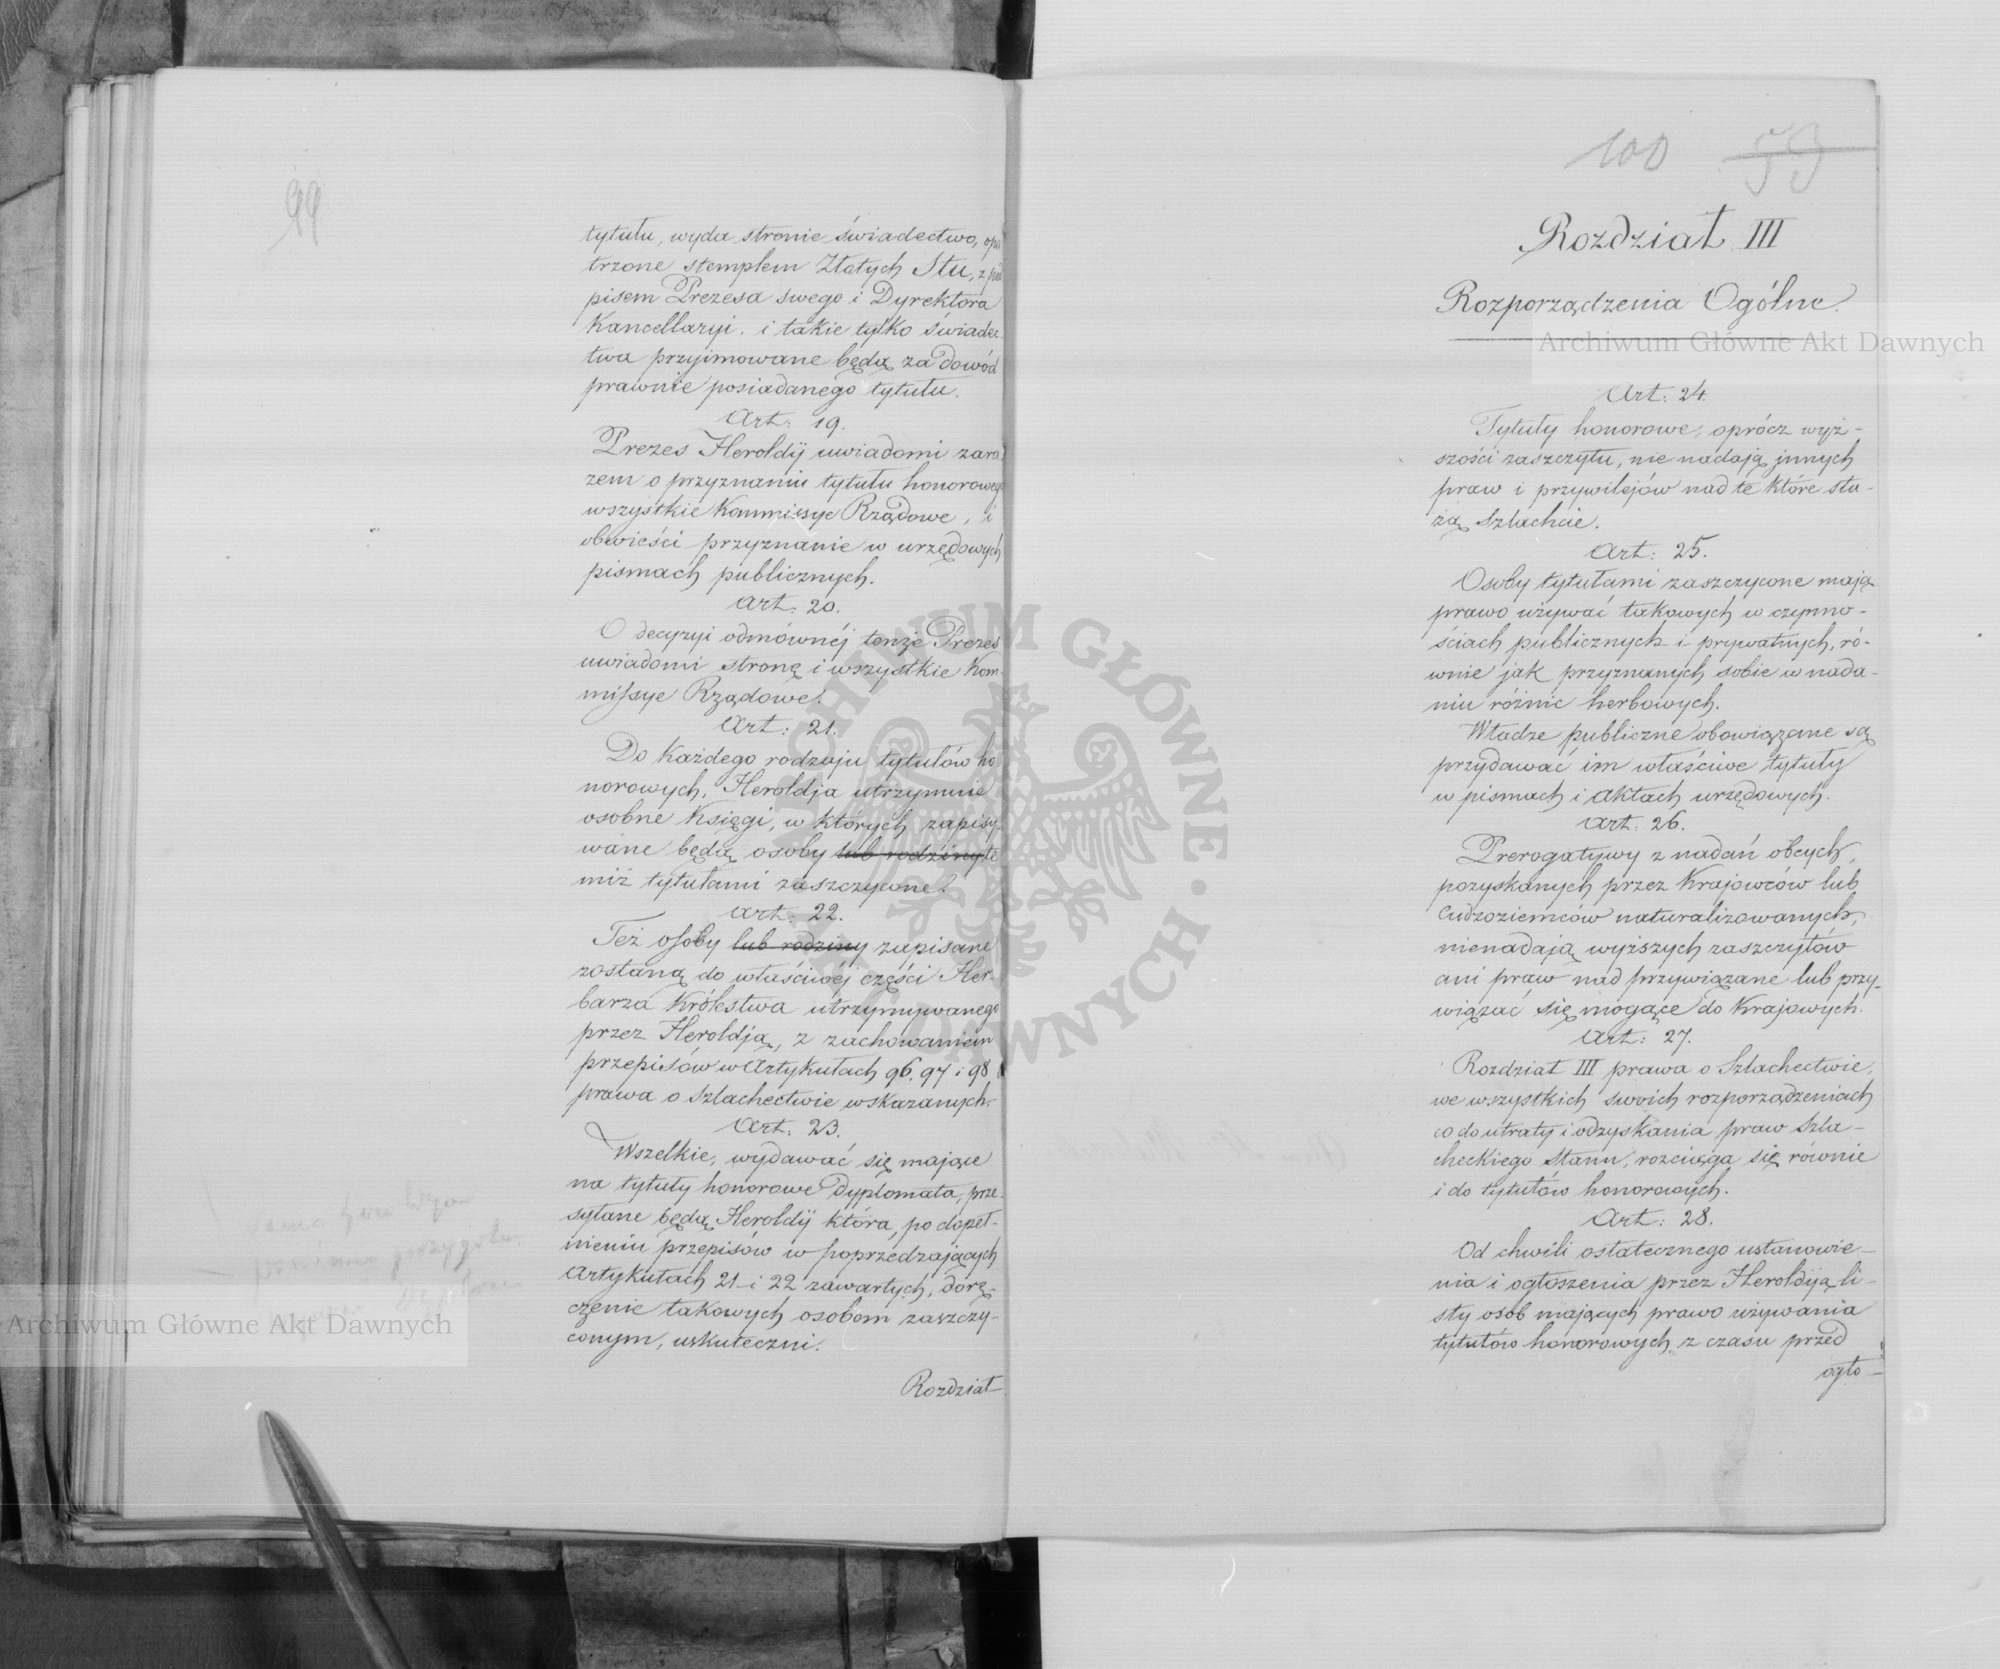 99
tytułu, wyda stronie świadectwo, opa
trzone stemplem Złotych Stu, z pod
pisem Prezesa swego i Dyrektora
Kancellaryi. i takie tylko świadec
twa przyimowane będą za dowód
prawnie posiadanego tytułu.
Art: 19.
Prezes Heroldij uwiadomi zara
zem o przyznaniu tytułu honorowego
wszystkie Kommissye Rządowe, i
obwieści przyznanie w urzędowych
pismach publicznych.
Art: 20.
O decyzyi odmównéj tenże Prezes
uwiadomi stronę i wszystkie Kom-
missye Rządowe.
Art: 21.
Do każdego rodzaju tytułów ho
norowych, Heroldja utrzymuie
osobne Księgi, w których zapisy-
wane będą osoby lub rodziny te
miż tytułami zaszczycone.
Art: 22.
Też osoby lub rodziny zapisane
zostaną do właściwéj części Her-
barza Królestwa utrzymywanego
przez Heroldją, z zachowaniem
przepisów w Artykułach 96, 97 i 98
prawa o szlachectwie wskazanych.
Art: 23.
Wszelkie, wydawać się mające
na tytuły honorowe Dyplomata, prze-
syłane będą Heroldij która, po dopeł-
nieniu przepisów w poprzedzających
Artykułach 21 i 22 zawartych, dorę-
czenie takowych osobom zaszczy-
conym, uskuteczni.
Rozdział
100 59
Rozdział III
Rozporządzenia Ogólne.
Art: 24.
Tytuły honorowe, oprócz wyż-
szości zaszczytu, nie nadają innych
praw i przywilejów nad te które słu-
żą Szlachcie.
Art: 25.
Osoby tytułami zaszczycone mają
prawo używać takowych w czynno-
ściach publicznych i prywatnych, ró-
wnie jak przyznanych sobie w nada-
niu różnic herbowych.
Władze publiczne obowiązane są
przydawać im właściwe tytuły
w pismach i Aktach urzędowych.
Art: 26.
Prerogatywy z nadań obcych,
pozyskanych przez Krajowców lub
Cudzoziemców naturalizowanych,
nienadają wyższych zaszczytów
ani praw nad przywiązane lub przy-
wiązać się mogące do Krajowych.
Art: 27.
Rozdział III prawa o Szlachectwie,
we wszystkich swoich rozporządzeniach
co do utraty i odzyskania praw Szla-
checkiego Stanu, rozciąga się równie
i do tytułów honorowych.
Art: 28.
Od chwili ostatecznego ustanowie-
nia i ogłoszenia przez Heroldiją li-
sty osób mających prawo używania
tytułów honorowych z czasu przed
ogło-
Archiwum Główne Akt Dawnych
Archiwum Główne Akt Dawnych
ARCHIWUM GŁÓWNE AKT DAWNYCH